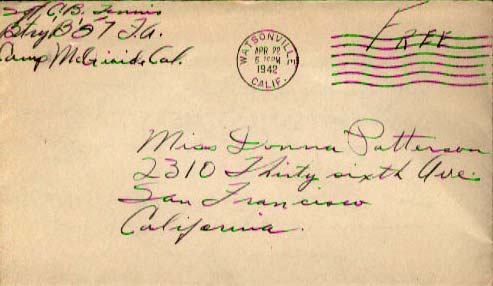 Sgt C.B. Tennis
Btry B 87 F.A.
Camp McQuaide Cal.
WATSONVILLE
APR 22
1942
CALIF.
FREE
Miss Donna Patterson
2310 Thirty sixth Ave.
San Francisco
California.